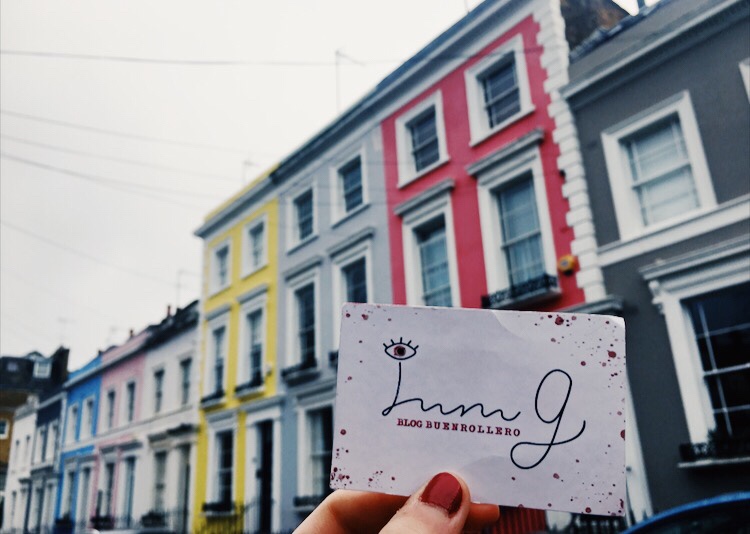 Inm g
BLOG BUENROLLERO